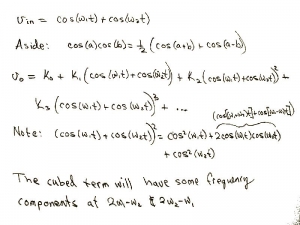 Vin = cos(ω₁t) + cos(ω₂t)
Aside: cos(a)cos(b) = ½ (cos(a+b) + cos(a-b))
Vo = K₀ + K₁(cos(ω₁t) + cos(ω₂t)) + K₂(cos(ω₁t) + cos(ω₂t))² +
K₃(cos(ω₁t) + cos(ω₂t))³ + ...
(cos[(ω₁+ω₂)t] + cos[(ω₁-ω₂)t])
Note: (cos(ω₁t) + cos(ω₂t))² = cos²(ω₁t) + 2cos(ω₁t)cos(ω₂t)
+ cos²(ω₂t)
The cubed term will have some frequency
components at 2ω₁-ω₂ & 2ω₂-ω₁